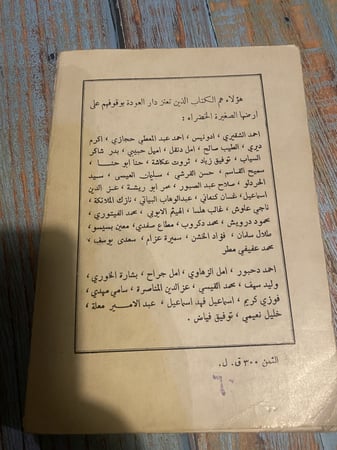 هؤلاء هم الكتاب الذين تعتز دار العودة بوقوفهم على
ارضها الصغيرة الخضراء :
احمد الشقيري ، ادونيس ، احمد عبد المعطي حجازي ، اكرم
ديري ، الطيب صالح ، امل دنقل ، اميل حبيبي ، بدر شاكر
السياب ، توفيق زياد ، ثروت عكاشة ، حنا ابو حنا ،
سميح القاسم ، حسن القرشي ، سليمان العيسى ، سيد
الحردلو ، صلاح عبد الصبور ، عمر ابو ريشة ، عز الدين
اسماعيل ، غسان كنفاني ، عبدالوهاب البياتي ، نازك الملائكة ،
ناجي علوش ، غالب هلسا ، الهيثم الايوبي ، محمد الفيتوري ،
محمود درويش ، محمد دكروب ، مطاع صفدي ، معين بسيسو ،
طلال سلمان ، فؤاد الخشن ، سميرة عزام ، سعدي يوسف ،
محمد عفيفي مطر
احمد دحبور ، امل الزهاوي ، امل جراح ، بشارة الخوري ،
وليد سيف ، محمد القيسي ، عزالدين المناصرة ، سامي مهدي ،
فوزي كريم ، اسماعيل فهد اسماعيل ، عبد الامير معلة ،
خليل نعيمي ، توفيق فياض .
الثمن ٣٠٠ ق. ل.